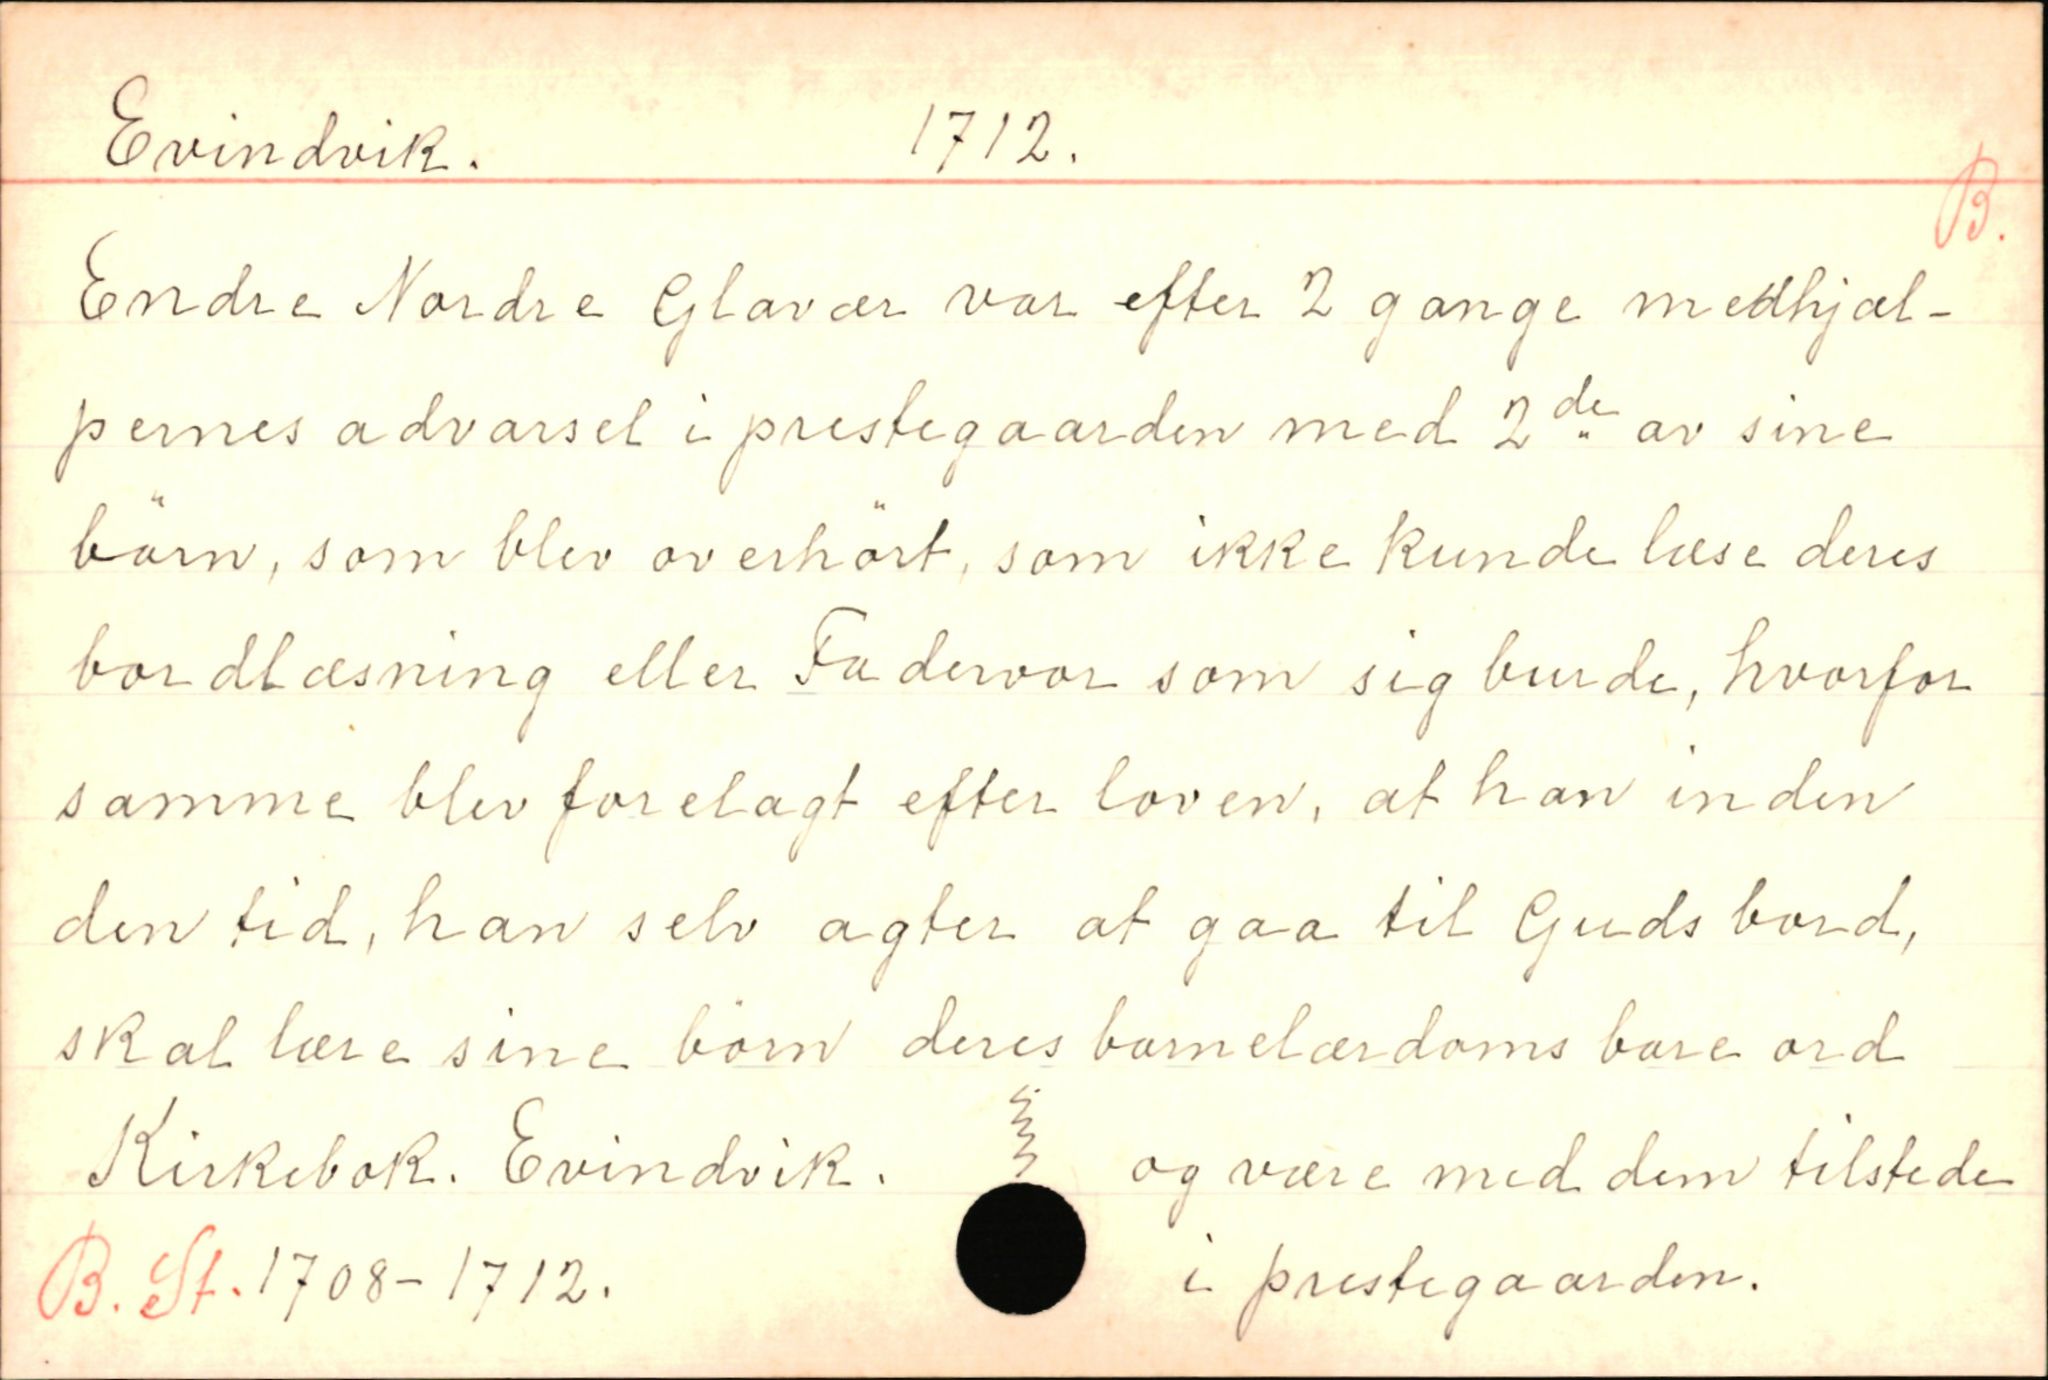 Evindvik. 1712.
B.
Endre Nordre Glavær var efter 2 gange medhjæl-
pernes advarsel i prestegaarden med 2de av sine
börn, som blev overhört, som ikke kunde læse deres
bordlæsning eller Fadervor som sig burde, hvorfor
samme blev forelagt efter loven, at han inden
den tid, han selv agter at gaa til Guds bord,
skal lære sine börn deres barnelærdoms bare ord
Kirkebok. Evindvik. og være med dem tilstede
B. St. 1708-1712. i prestegaarden.